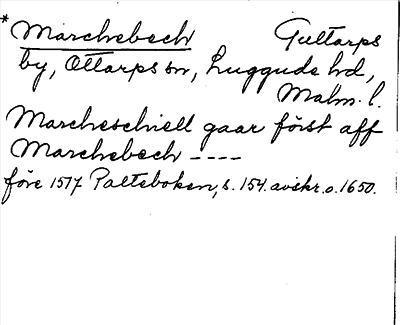 * Marchebech Gultarps
by, Ottarps sn, Luggude hd,
Malm. l.
Marcheschiell gaar först aff
Marchebech ----
före 1517 Palteboken, s. 154. avskr. o. 1650.